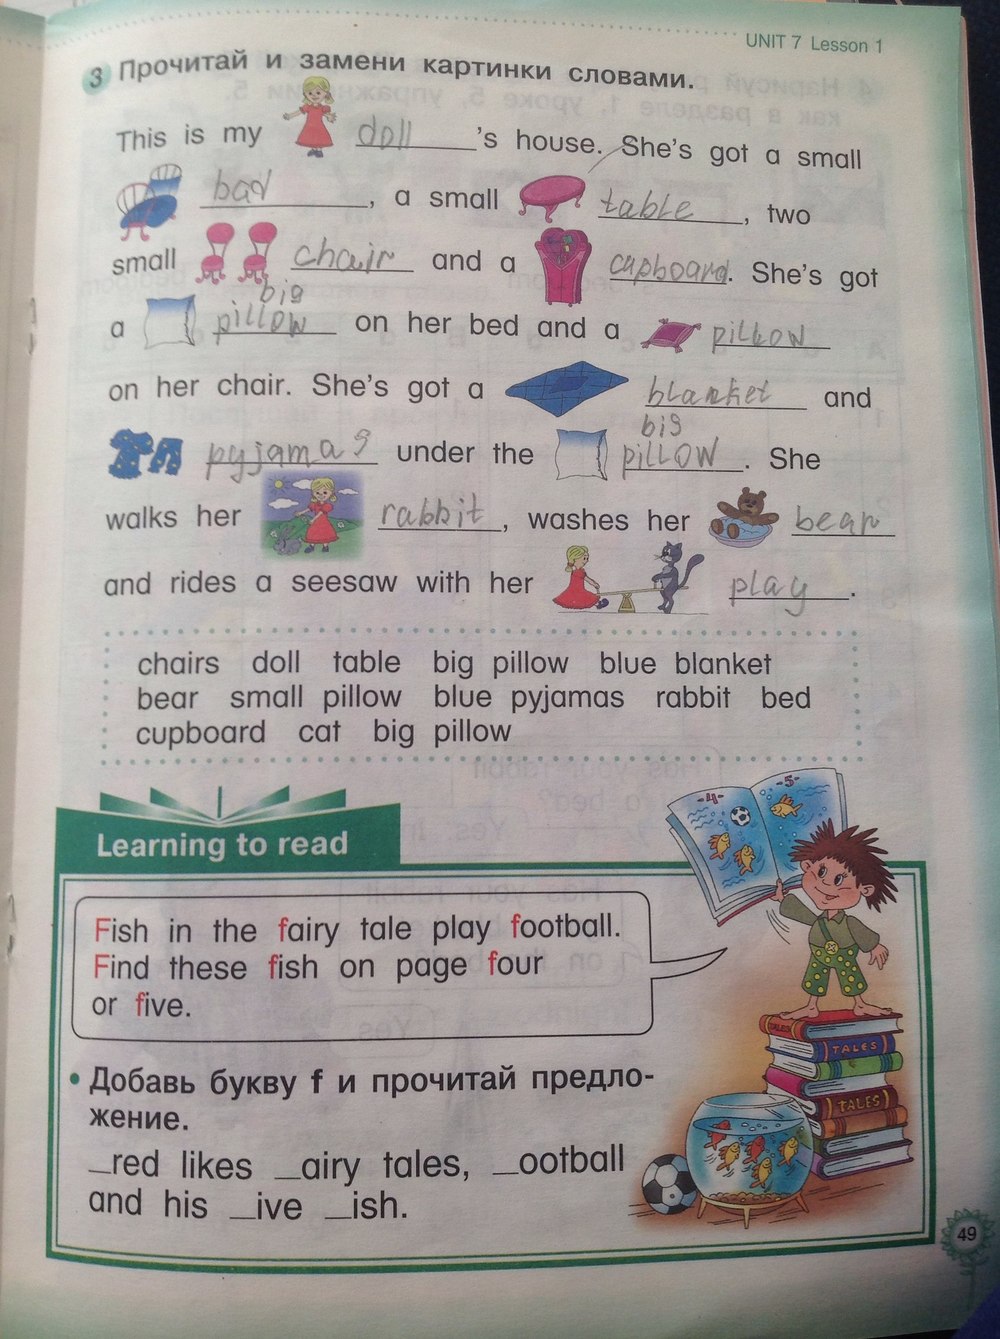 UNIT 7 Lesson 1
3 Прочитай и замени картинки словами.
This is my doll 's house. She's got a small
bad, a small table, two
small chair and a cupboard. She's got
big
a pillow on her bed and a pillow
on her chair. She's got a blanket and
big
pyjamas under the pillow. She
walks her rabbit, washes her bear
and rides a seesaw with her play.
chairs doll table big pillow blue blanket
bear small pillow blue pyjamas rabbit bed
cupboard cat big pillow
Learning to read
-4- -5-
Fish in the fairy tale play football.
Find these fish on page four
or five.
TALES
TALES
TALES
• Добавь букву f и прочитай предло-
жение.
_red likes _airy tales, _ootball
and his _ive _ish.
49